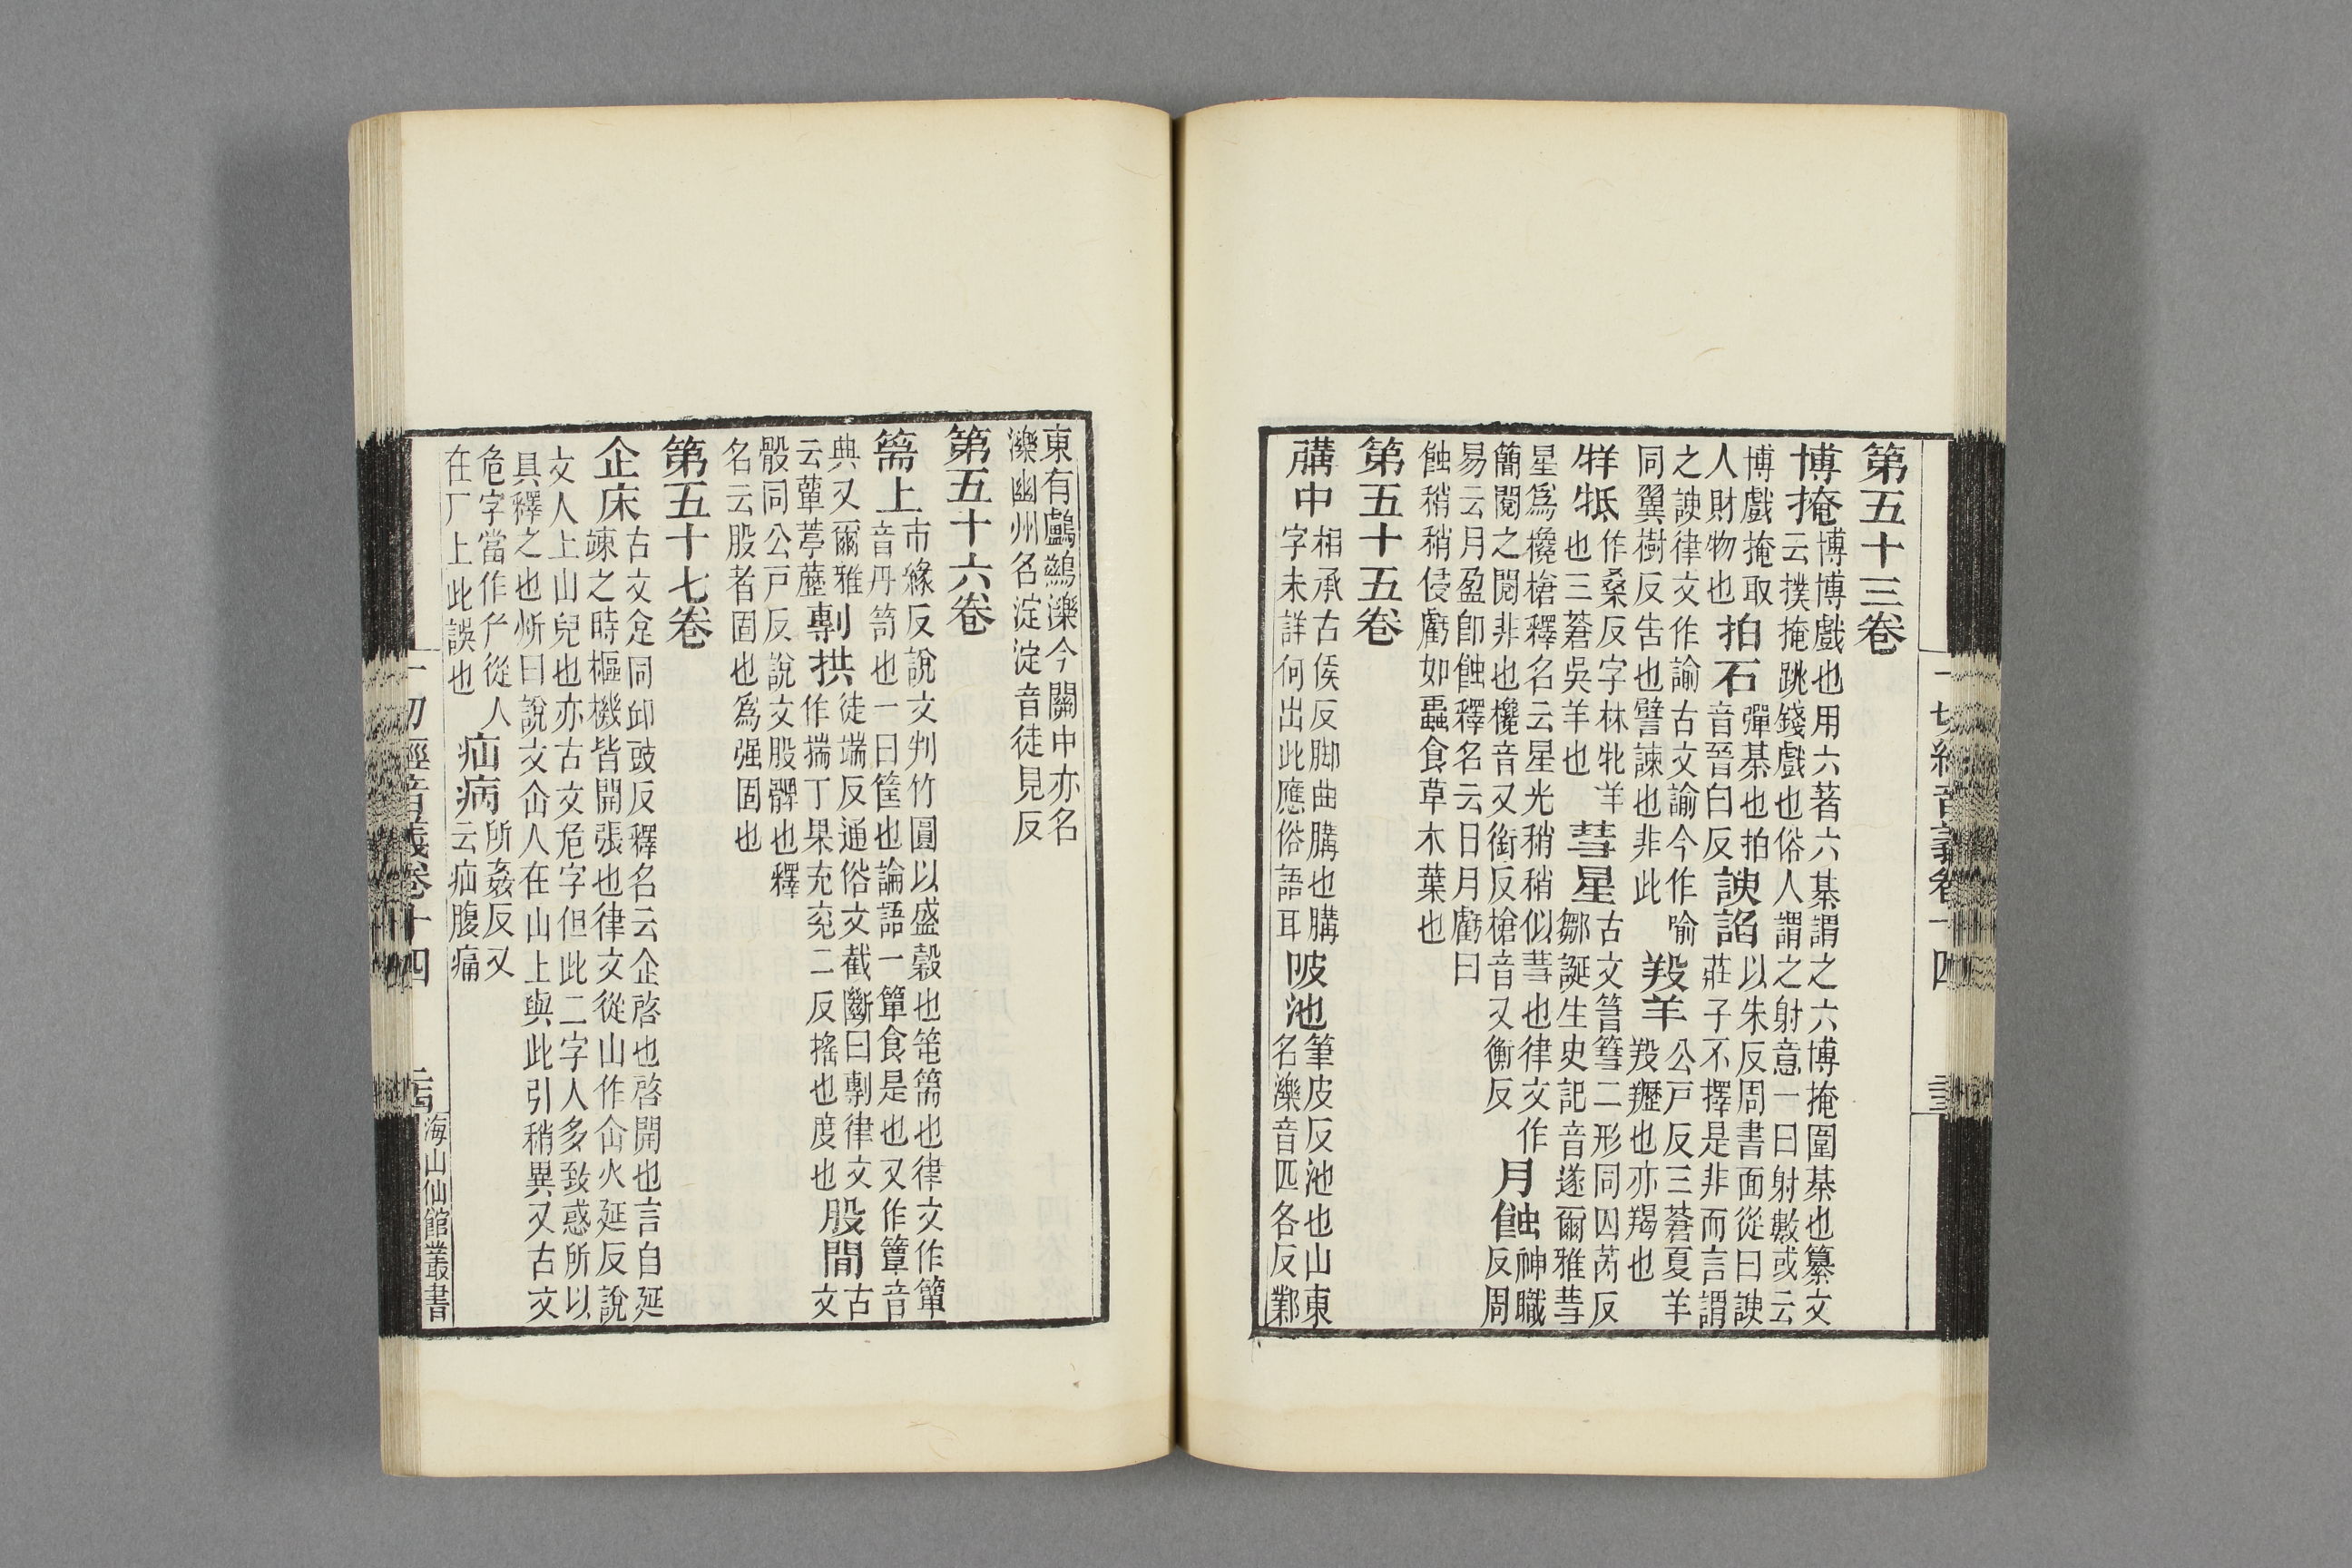 第五十三卷
博掩博博戲也用六著六棊謂之六博掩圍棊也纂文
云撲掩跳錢戲也俗人謂之射意一曰射數或云
博戲掩取
人財物也
拍石彈棊也拍
音晉白反
諛諂以朱反周書面從曰諛
莊子不擇是非而言謂
之諛律文作諭古文諭今作喻
同翼樹反告也譬諫也非此
羖羊公戸反三蒼夏羊
羖䍽也亦羯也
牂羝作桑反字林牝羊
也三蒼吳羊也
彗星古文篲䇫二形同囚芮反
鄒誕生史記音遂爾雅彗
星爲欃槍釋名云星光稍稍似彗也律文作
簡閱之閱非也欃音又銜反槍音叉衡反
月蝕神職
反周
易云月盈卽蝕釋名云日月虧曰
蝕稍稍侵虧如蟲食草木葉也
第五十五卷
䐟中相承古侯反脚曲膞也膞
字未詳何出此應俗語耳
陂池筆皮反池也山東
名濼音匹各反鄴
東有鸕鷀濼今關中亦名
濼幽州名淀淀音徒見反
第五十六卷
篅上市緣反說文判竹圓以盛穀也笔篅也律文作簞
音丹笥也一曰筐也論語一簞食是也又作簟音
典又爾雅
云蕈葶藶
剸拱徒端反通俗文截斷曰剸律文
作揣丁果充兖二反搖也度也
股閒古文
骰同公戸反說文股髀也釋
名云股者固也爲强固也
第五十七卷
企床古文㐸同卭豉反釋名云企啓也啓開也言自延
竦之時樞機皆開張也律文從山作仚火延反說
文人上山皃也亦古文危字但此二字人多致惑所以
具釋之也㪽曰說文仚人在山上與此引稍異又古文
危字當作㕒從人
在厂上此誤也
疝病所姦反又
云疝腹痛
一切經音義卷十四
海山仙館叢書